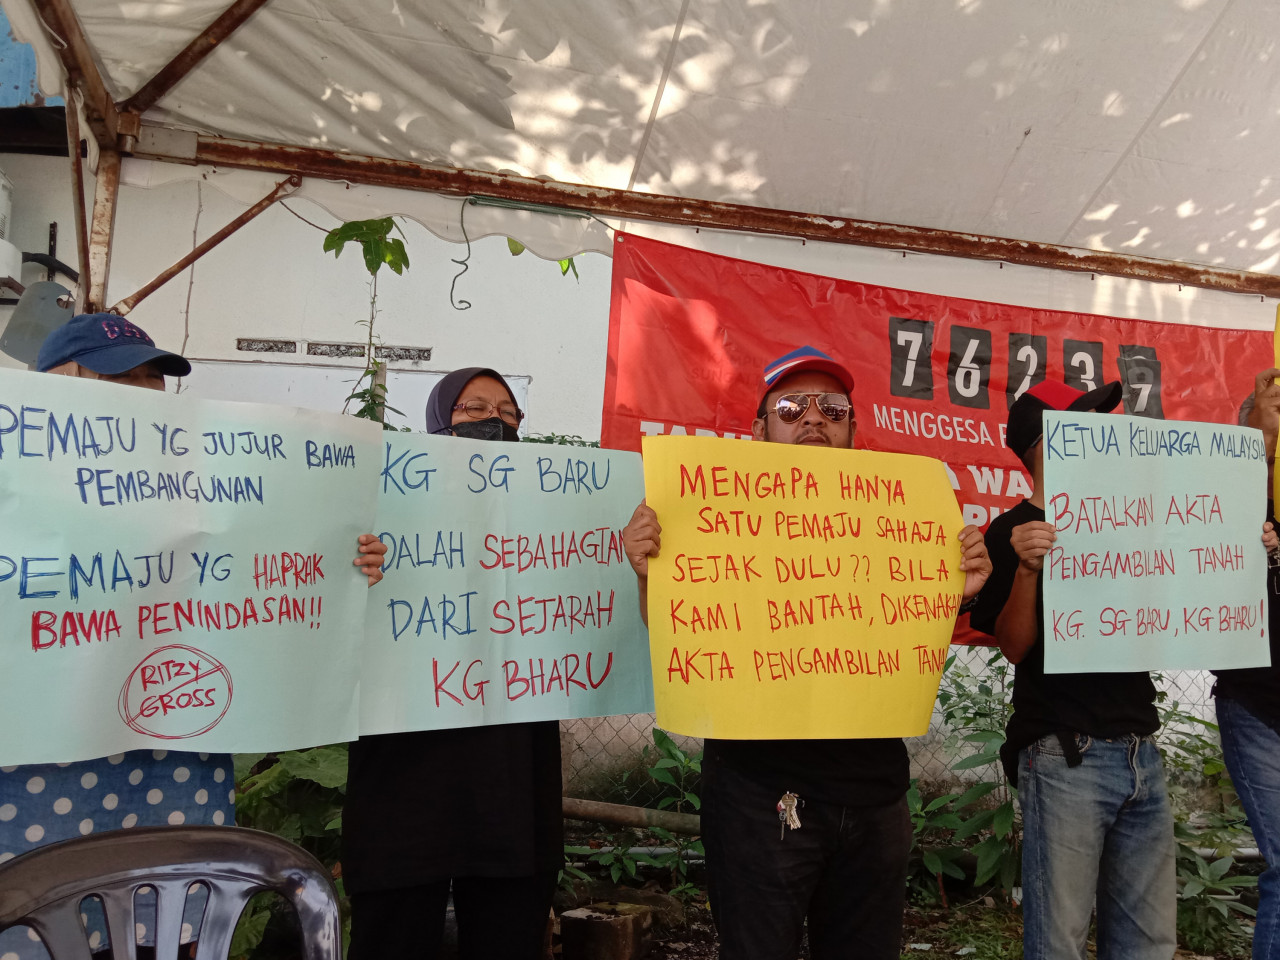 PEMAJU YG JUJUR BAWA
PEMBANGUNAN
PEMAJU YG HAPRAK
BAWA PENINDASAN!!
RITZY
GROSS
KG SG BARU
DALAH SEBAHAGIAN
DARI SEJARAH
KG BHARU
MENGAPA HANYA
SATU PEMAJU SAHAJA
SEJAK DULU?? BILA
KAMI BANTAH, DIKENAKAN
AKTA PENGAMBILAN TANA
KETUA KELUARGA MALAYSIA
BATALKAN AKTA
PENGAMBILAN TANAH
KG. SG BARU, KG BHARU!
7 6 2 3 7
MENGGESA
WA